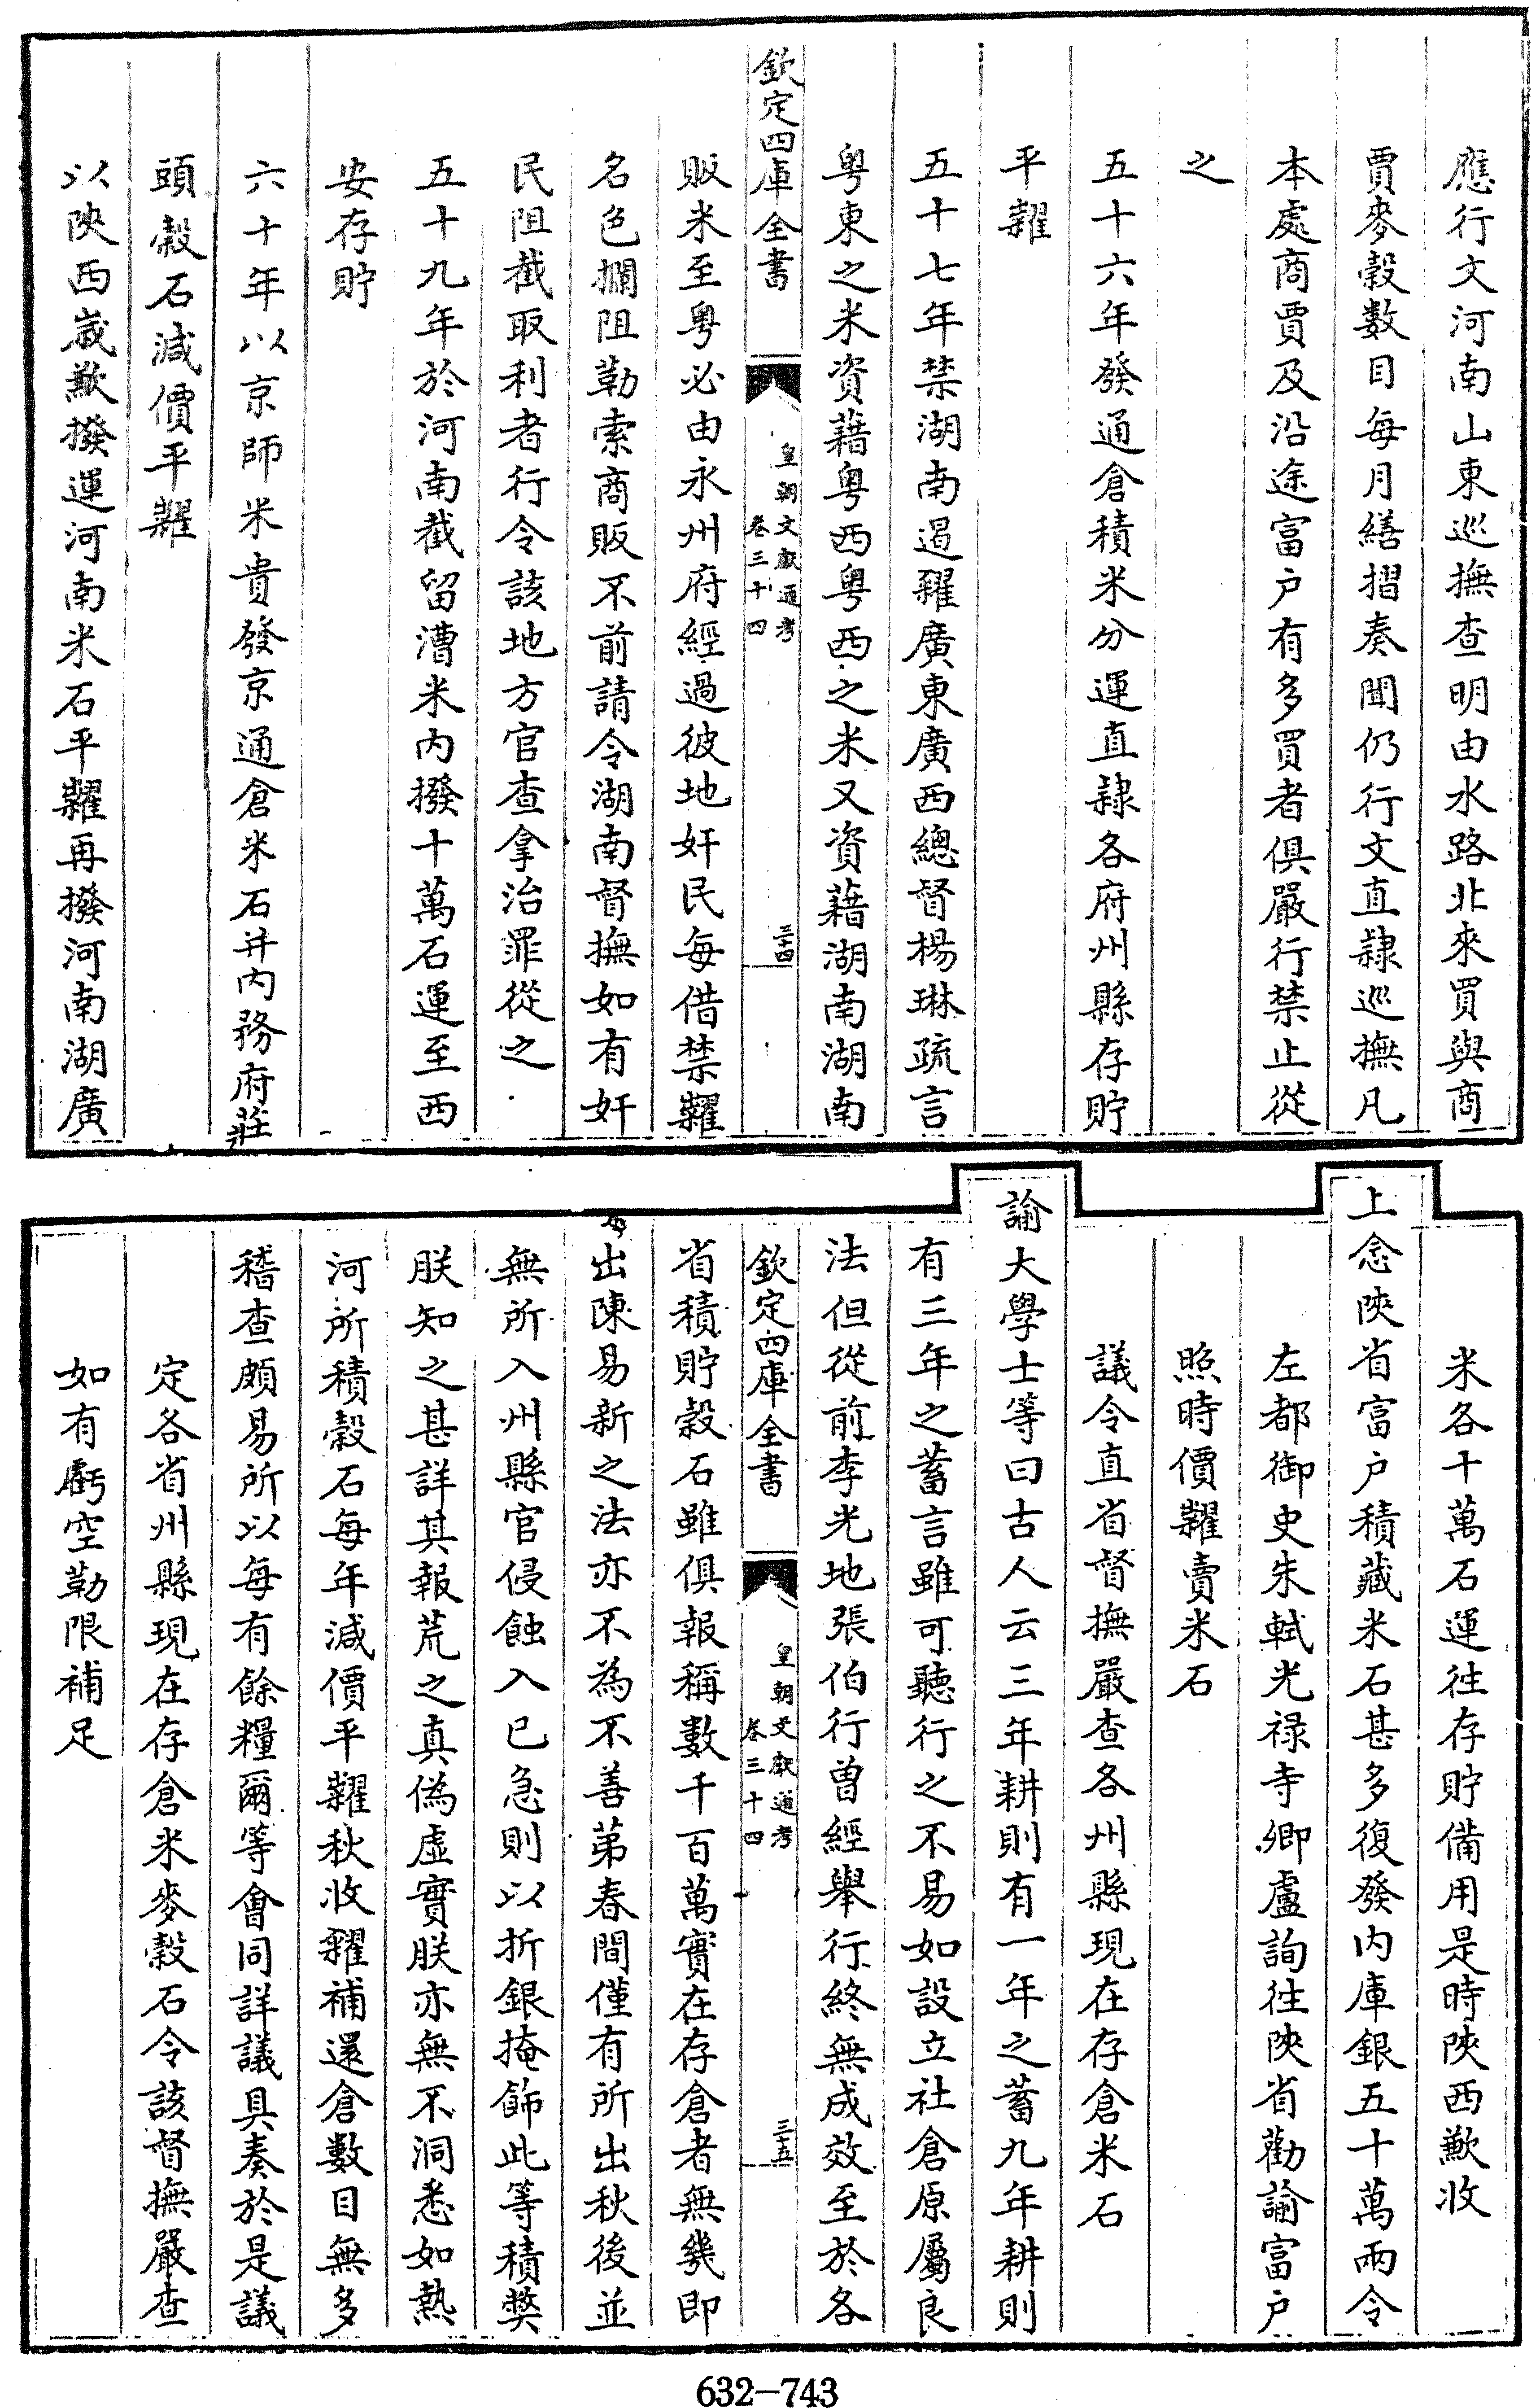 應行文河南山東巡撫查明由水路北來買與商
賈麥穀數目每月繕摺奏聞仍行文直隸巡撫凡
本處商賈及沿途富户有多買者俱嚴行禁止從
之
五十六年發通倉積米分運直隸各府州縣存貯
平糶
五十七年禁湖南遏糴廣東廣西總督楊琳疏言
粤東之米資藉粤西粤西之米又資藉湖南湖南
欽定四庫全書
皇朝文獻通考
卷三十四
三十四
販米至粤必由永州府經過彼地奸民每借禁糶
名色攔阻勒索商販不前請令湖南督撫如有奸
民阻截取利者行令該地方官查拿治罪從之
五十九年於河南截留漕米内撥十萬石運至西
安存貯
六十年以京師米貴發京通倉米石并内務府莊
頭穀石減價平糶
以陝西歲歉撥運河南米石平糶再撥河南湖廣
米各十萬石運往存貯備用是時陝西歉收
上念陝省富户積藏米石甚多復發内庫銀五十萬兩令
左都御史朱軾光禄寺卿盧詢往陝省勸諭富户
照時價糶賣米石
議令直省督撫嚴查各州縣現在存倉米石
諭大學士等曰古人云三年耕則有一年之蓄九年耕則
有三年之蓄言雖可聽行之不易如設立社倉原屬良
法但從前李光地張伯行曾經舉行終無成效至於各
欽定四庫全書
皇朝文獻通考
卷三十四
三十五
省積貯穀石雖俱報稱數千百萬實在存倉者無幾即
出陳易新之法亦不為不善第春間僅有所出秋後並
無所入州縣官侵蝕入已急則以折銀掩飾此等積獘
朕知之甚詳其報荒之真偽虛實朕亦無不洞悉如熱
河所積穀石每年減價平糶秋收糴補還倉數目無多
稽查頗易所以每有餘糧爾等會同詳議具奏於是議
定各省州縣現在存倉米麥穀石令該督撫嚴查
如有虧空勒限補足
632-743